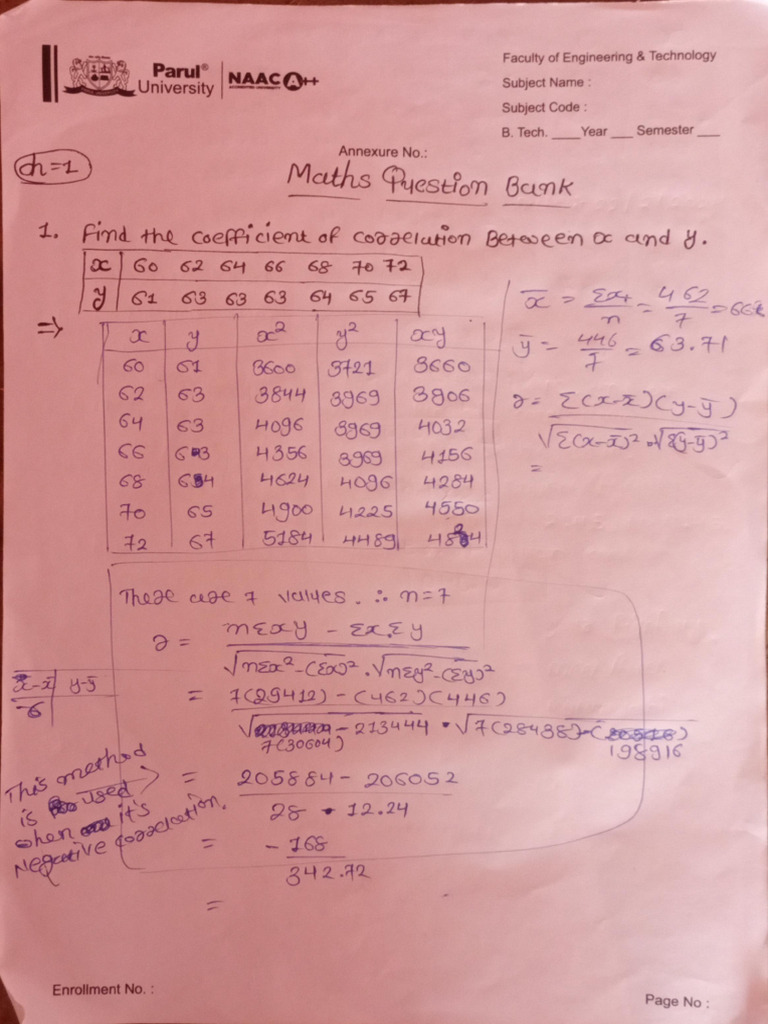 Parul®
University
NAAC A++
ACCREDITED UNIVERSITY
Faculty of Engineering & Technology
Subject Name :
Subject Code :
B. Tech. ____Year ___ Semester ___
Annexure No.:
ch=1
Maths Question Bank
1. Find the coefficient of correlation Between x and y.
x 60 62 64 66 68 70 72
y 61 63 63 63 64 65 67
⇒
x y x² y² xy
60 61 3600 3721 3660
62 63 3844 3969 3906
64 63 4096 3969 4032
66 63 4356 3969 4156
68 64 4624 4096 4284
70 65 4900 4225 4550
72 67 5184 4489 4824
x̄ = Σx/n = 462/7 = 66
ȳ = 446/7 = 63.71
r = Σ(x-x̄)(y-ȳ) / √Σ(x-x̄)² · √Σ(y-ȳ)²
=
There are 7 values. ∴ n=7
r = nΣxy - Σx.Σy / √nΣx²-(Σx)² · √nΣy²-(Σy)²
= 7(29412) - (462)(446) / √7(30604) - 213444 · √7(28438)-198916
= 205884 - 206052 / 28 · 12.24
= -168 / 342.72
=
x-x̄ y-ȳ
-6
This method
is used
when it's
Negative correlation.
Enrollment No. :
Page No :